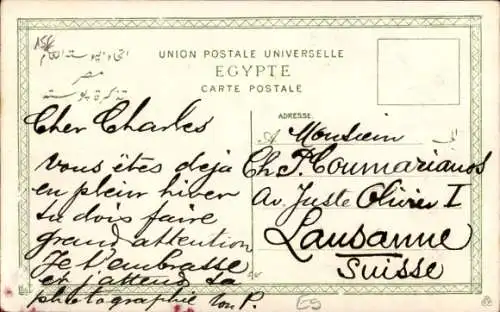 UNION POSTALE UNIVERSELLE
EGYPTE
CARTE POSTALE
مصر
ADRESSE
A
الى
Cher Charles
vous êtes deja
en plein hiver
tu dois faire
grand attention
Je t'embrasse
et j'attend ta
photographie ton P.
Monsieur
Ch. P. Coumarianos
Av. Juste Olivier I
Lausanne
Suisse